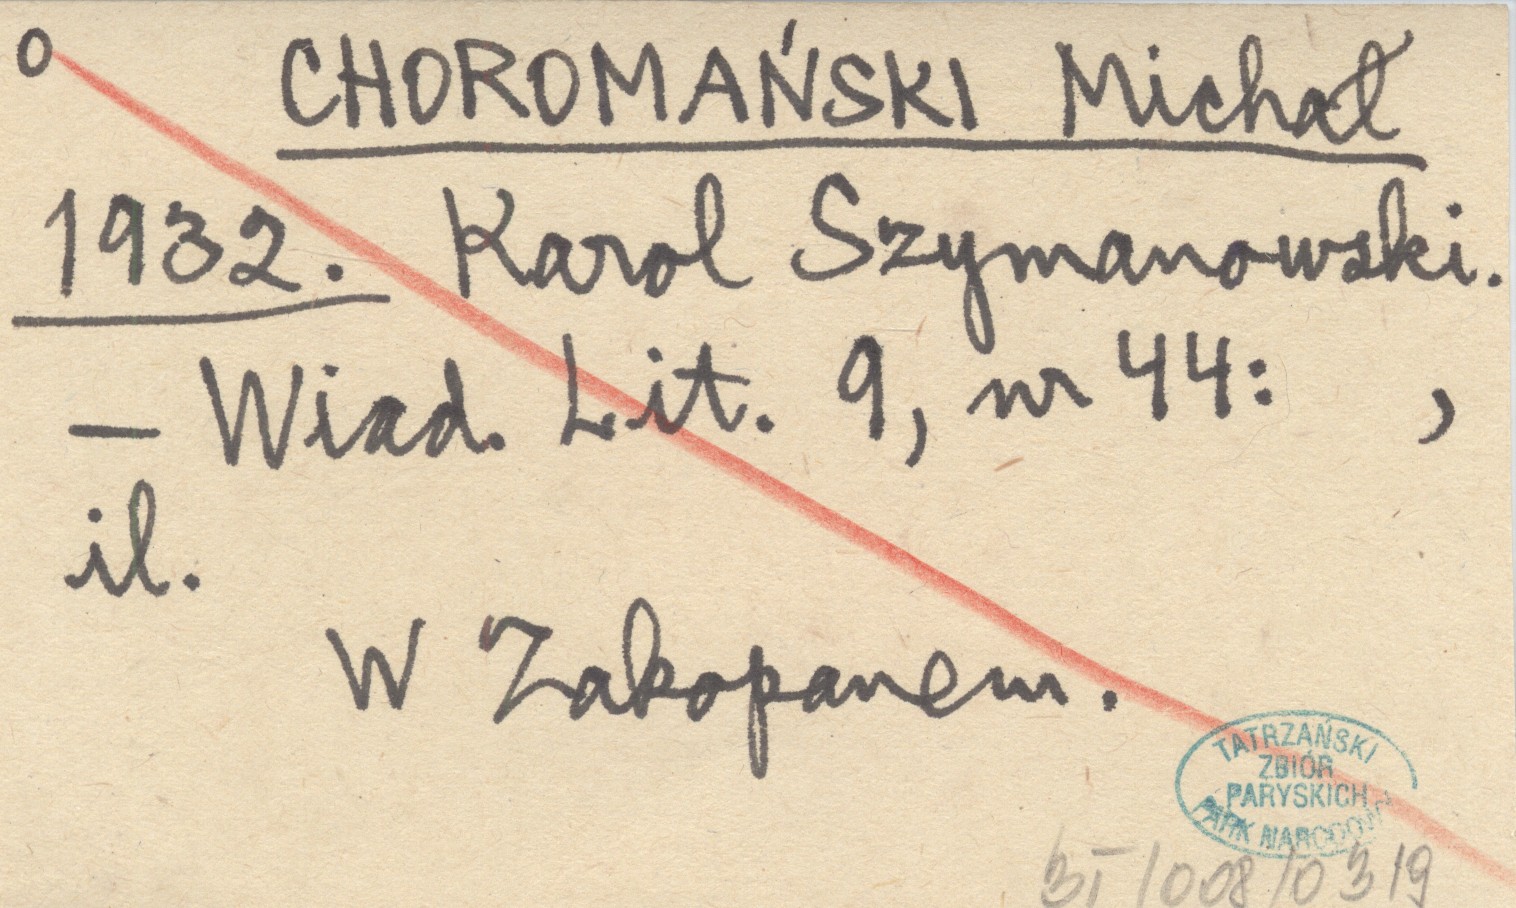 o CHOROMAŃSKI Michał
1932. Karol Szymanowski.
— Wiad. Lit. 9, nr 44: ,
il.
W Zakopanem.
TATRZAŃSKI
ZBIÓR
PARYSKICH
PARK NARODOWY
3I/008/0319